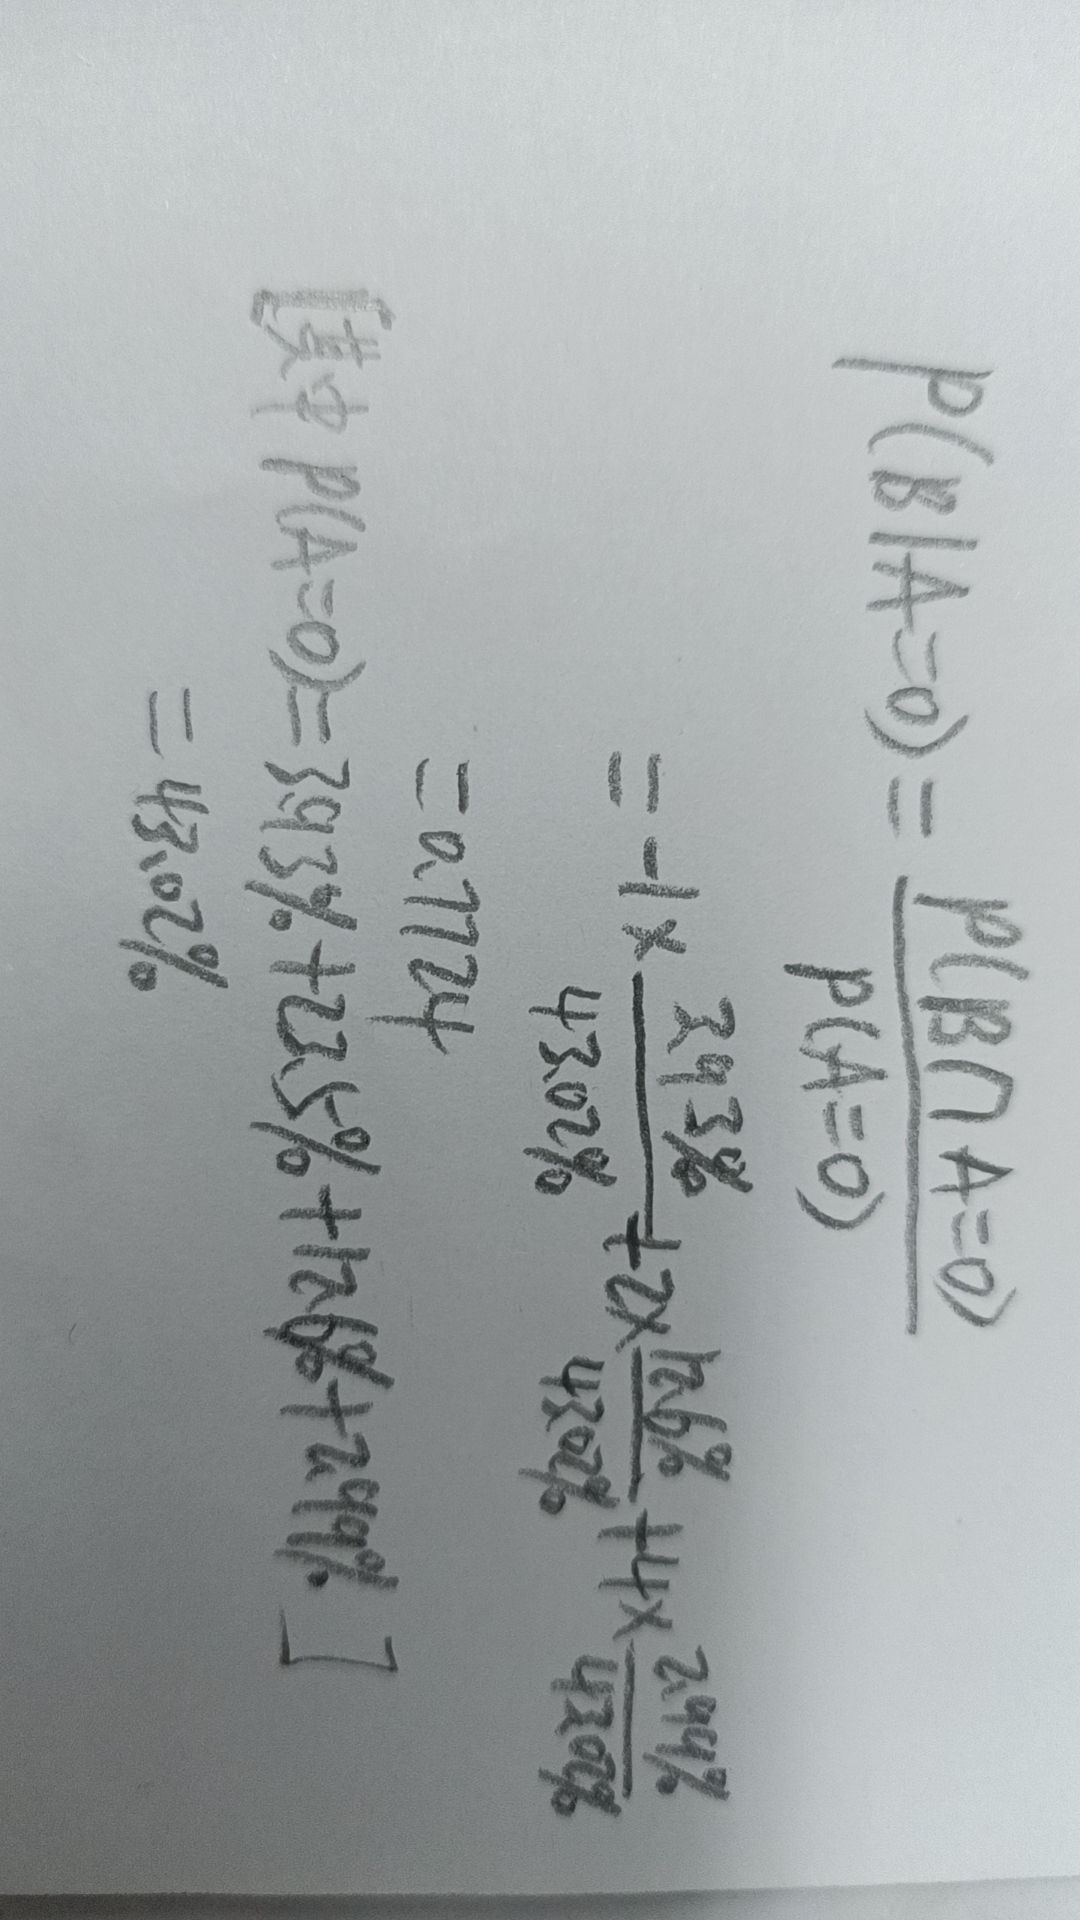 P(B|A=0) = P(B∩A=0) / P(A=0)
= -1× 3.93%/43.02% +2× 12.6%/43.02% +4× 2.99%/43.02%
= 0.7724
[其中 P(A=0)=3.93%+23.5%+12.6%+2.99%]
= 43.02%